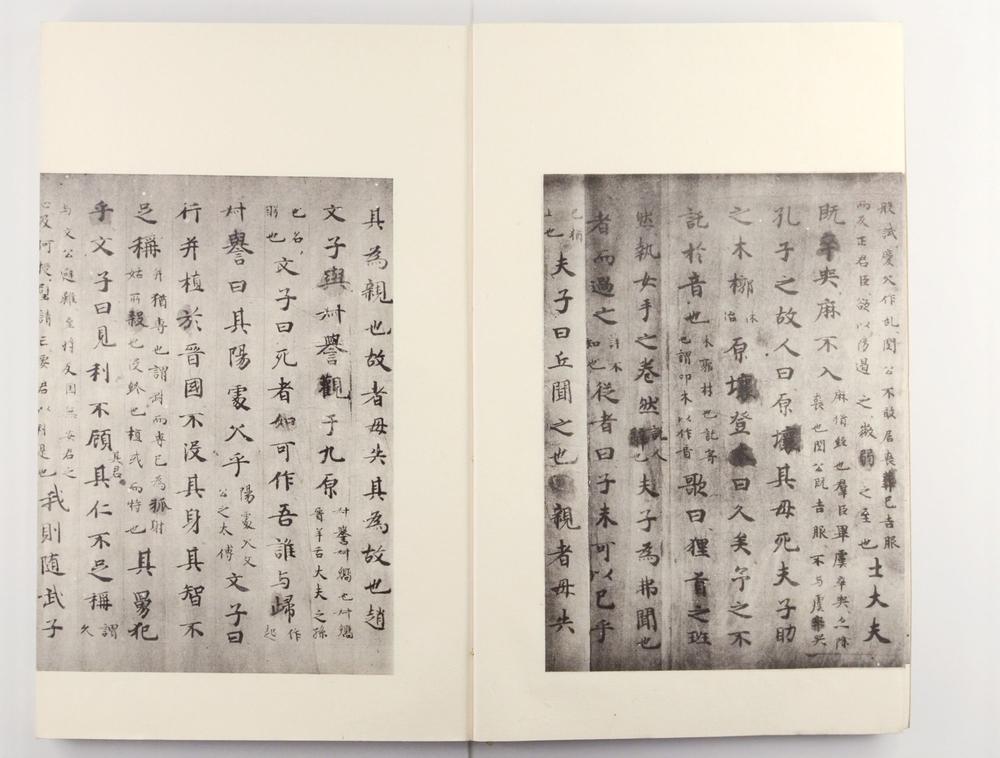 般弑慶父作乱閔公不敢居喪葬已吉服
而反正君臣欲以防遏之微弱之至也士大夫
既卒哭麻不入麻猶絰也羣臣畢虞卒哭之除
喪也閔公既吉服不与虞卒哭
孔子之故人曰原壤其母死夫子助
之木槨沐治原壤登曰久矣予之不
託於音也木槨材也託寄
也謂叩木以作音歌曰狸首之班
然執女手之卷然説人
辭也夫子為弗聞也
者而過之詳不
知也從者曰子未可以已乎
已猶
止也夫子曰丘聞之也親者毋失
其為親也故者毋失其為故也趙
文子與叔譽觀于九原叔譽叔嚮也叔嚮
晉羊舌大夫之孫
也名
肸也文子曰死者如可作吾誰与歸作
起
叔譽曰其陽處父乎陽處父父
公之太傅文子曰
行并植於晉國不没其身其智不
足稱并猶専也謂剛而専己為狐射
姑所殺也没終也植或為特也其舅犯
乎文子曰見利不顧其君其仁不足稱謂
久
与文公避難至將反国無安君之
心及河授璧請亡要君以利是也我則随武子